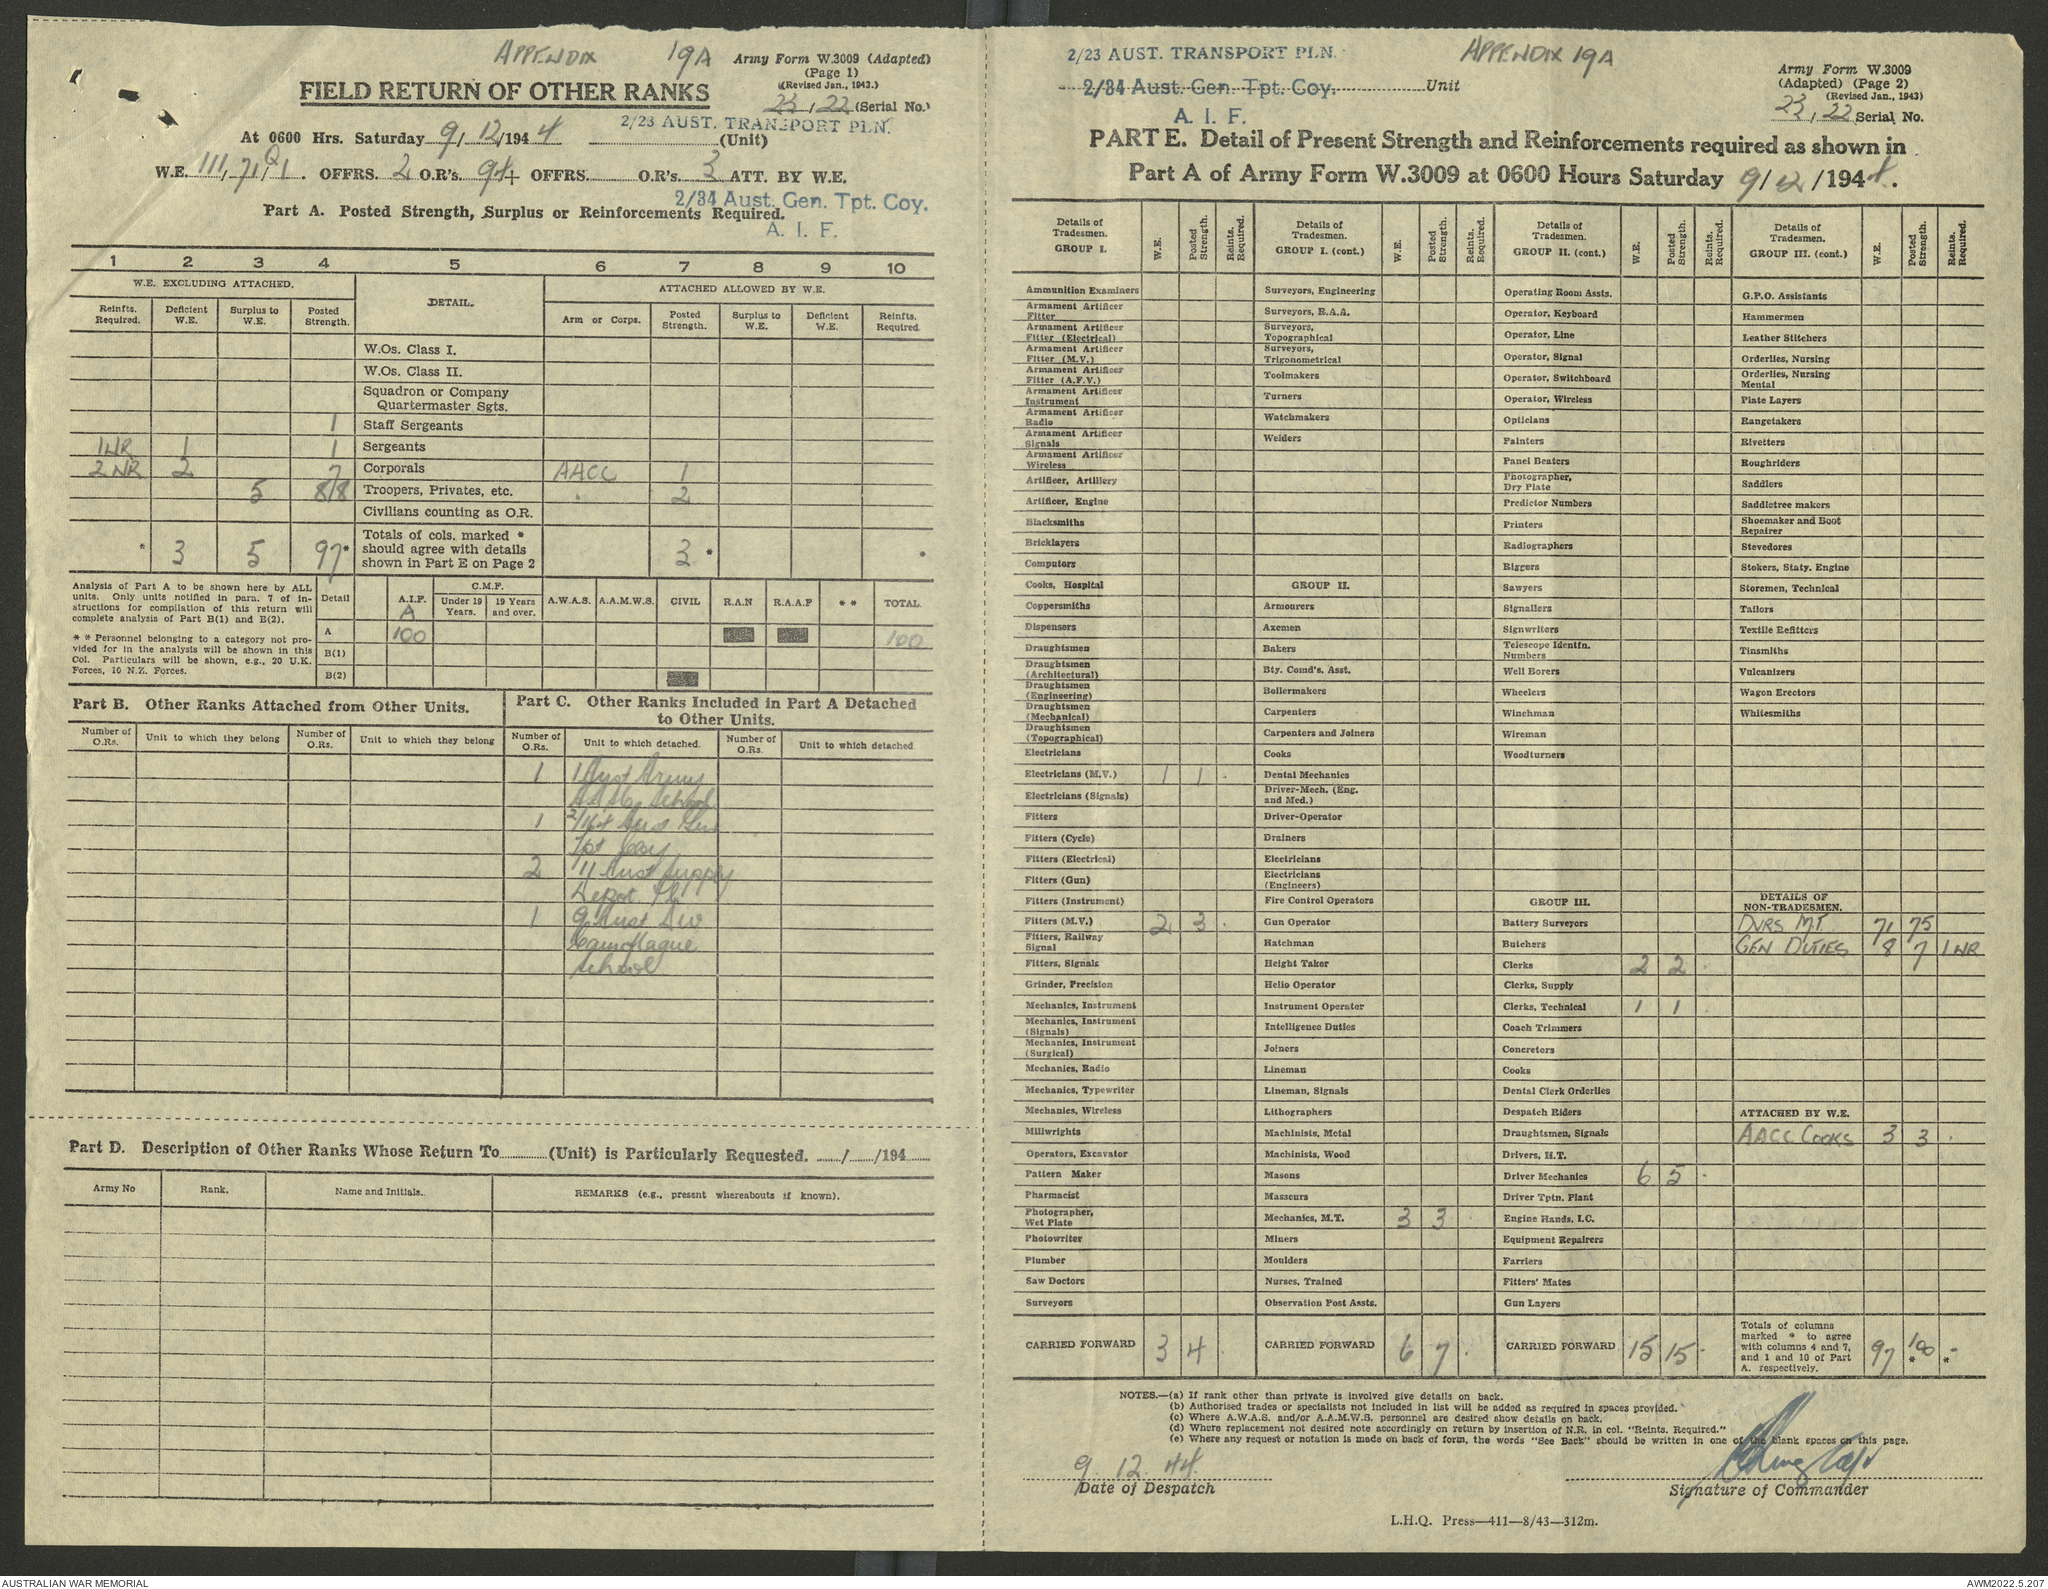 APPENDIX 19A
Army Form W.3009 (Adapted)
(Page 1)
(Revised Jan., 1943.)
FIELD RETURN OF OTHER RANKS
23, 22 (Serial No.)
2/23 AUST. TRANSPORT PLN.
At 0600 Hrs. Saturday 9/12/1944 (Unit)
W.E. 111, 71, 1. OFFRS. 2 O.R's. 94+ OFFRS. O.R's. 3 ATT. BY W.E.
2/34 Aust. Gen. Tpt. Coy.
A. I. F.
Part A. Posted Strength, Surplus or Reinforcements Required.
1 2 3 4 5 6 7 8 9 10
W.E. EXCLUDING ATTACHED. DETAIL. ATTACHED ALLOWED BY W.E.
Reinfts. Required. Deficient W.E. Surplus to W.E. Posted Strength. Arm or Corps. Posted Strength. Surplus to W.E. Deficient W.E. Reinfts. Required.
W.Os. Class I.
W.Os. Class II.
Squadron or Company
Quartermaster Sgts.
1 Staff Sergeants
1 NR 1 1 Sergeants
2 NR 2 7 Corporals AACC 1
5 88 Troopers, Privates, etc. 2
Civilians counting as O.R.
* 3 5 97* Totals of cols. marked * should agree with details shown in Part E on Page 2 3 * *
Analysis of Part A to be shown here by ALL
units. Only units notified in para. 7 of in-
structions for compilation of this return will
complete analysis of Part B(1) and B(2).
* * Personnel belonging to a category not pro-
vided for in the analysis will be shown in this
Col. Particulars will be shown, e.g., 20 U.K.
Forces, 10 N.Z. Forces.
Detail A.I.F. C.M.F. Under 19 Years. 19 Years and over. A.W.A.S. A.A.M.W.S. CIVIL R.A.N R.A.A.F * * TOTAL.
A
A 100 100
B(1)
B(2)
Part B. Other Ranks Attached from Other Units.
Number of O.Rs. Unit to which they belong Number of O.Rs. Unit to which they belong
Part C. Other Ranks Included in Part A Detached
to Other Units.
Number of O.Rs. Unit to which detached. Number of O.Rs. Unit to which detached
1 1 Aust Army
School
1 Aust Gen
Tpt Coy
2 11 Aust Supply
Depot Pl
1 9 Aust Div
Camoflague
School
Part D. Description of Other Ranks Whose Return To (Unit) is Particularly Requested. / /194
Army No Rank. Name and Initials. REMARKS (e.g., present whereabouts if known).
2/23 AUST. TRANSPORT PLN.
APPENDIX 19A
2/34 Aust. Gen. Tpt. Coy. Unit
A. I. F.
Army Form W.3009
(Adapted) (Page 2)
(Revised Jan., 1943)
23, 22 Serial No.
PART E. Detail of Present Strength and Reinforcements required as shown in
Part A of Army Form W.3009 at 0600 Hours Saturday 9/12/1944.
Details of Tradesmen. GROUP I. W.E. Posted Strength. Reints. Required.
Ammunition Examiners
Armament Artificer Fitter
Armament Artificer Fitter (Electrical)
Armament Artificer Fitter (M.V.)
Armament Artificer Fitter (A.F.V.)
Armament Artificer Instrument
Armament Artificer Radio
Armament Artificer Signals
Armament Artificer Wireless
Artificer, Artillery
Artificer, Engine
Blacksmiths
Bricklayers
Computors
Cooks, Hospital
Coppersmiths
Dispensers
Draughtsmen
Draughtsmen (Architectural)
Draughtsmen (Engineering)
Draughtsmen (Mechanical)
Draughtsmen (Topographical)
Electricians
Electricians (M.V.) 1 1
Electricians (Signals)
Fitters
Fitters (Cycle)
Fitters (Electrical)
Fitters (Gun)
Fitters (Instrument)
Fitters (M.V.) 2 3
Fitters, Railway Signal
Fitters, Signals
Grinder, Precision
Mechanics, Instrument
Mechanics, Instrument (Signals)
Mechanics, Instrument (Surgical)
Mechanics, Radio
Mechanics, Typewriter
Mechanics, Wireless
Millwrights
Operators, Excavator
Pattern Maker
Pharmacist
Photographer, Wet Plate
Photowriter
Plumber
Saw Doctors
Surveyors
CARRIED FORWARD 3 4
Details of Tradesmen. GROUP I. (cont.) W.E. Posted Strength. Reints. Required.
Surveyors, Engineering
Surveyors, R.A.A.
Surveyors, Topographical
Surveyors, Trigonometrical
Toolmakers
Turners
Watchmakers
Welders
GROUP II.
Armourers
Axemen
Bakers
Bty. Comd's. Asst.
Boilermakers
Carpenters
Carpenters and Joiners
Cooks
Dental Mechanics
Driver-Mech. (Eng. and Med.)
Driver-Operator
Drainers
Electricians
Electricians (Engineers)
Fire Control Operators
Gun Operator
Hatchman
Height Taker
Helio Operator
Instrument Operator
Intelligence Duties
Joiners
Lineman
Lineman, Signals
Lithographers
Machinists, Metal
Machinists, Wood
Masons
Masseurs
Mechanics, M.T. 3 3
Miners
Moulders
Nurses, Trained
Observation Post Assts.
CARRIED FORWARD 6 7
Details of Tradesmen. GROUP II. (cont.) W.E. Posted Strength. Reints. Required.
Operating Room Assts.
Operator, Keyboard
Operator, Line
Operator, Signal
Operator, Switchboard
Operator, Wireless
Opticians
Painters
Panel Beaters
Photographer, Dry Plate
Predictor Numbers
Printers
Radiographers
Riggers
Sawyers
Signallers
Signwriters
Telescope Identfn. Numbers
Well Borers
Wheelers
Winchman
Wireman
Woodturners
GROUP III.
Battery Surveyors
Butchers
Clerks 2 2
Clerks, Supply
Clerks, Technical 1 1
Coach Trimmers
Concreters
Cooks
Dental Clerk Orderlies
Despatch Riders
Draughtsmen, Signals
Drivers, H.T.
Driver Mechanics 6 5
Driver Tptn. Plant
Engine Hands, I.C.
Equipment Repairers
Farriers
Fitters' Mates
Gun Layers
CARRIED FORWARD 15 15
Details of Tradesmen. GROUP III. (cont.) W.E. Posted Strength. Reints. Required.
G.P.O. Assistants
Hammermen
Leather Stitchers
Orderlies, Nursing
Orderlies, Nursing Mental
Plate Layers
Rangetakers
Rivetters
Roughriders
Saddlers
Saddletree makers
Shoemaker and Boot Repairer
Stevedores
Stokers, Staty. Engine
Storemen, Technical
Tailors
Textile Refitters
Tinsmiths
Vulcanizers
Wagon Erectors
Whitesmiths
DETAILS OF NON-TRADESMEN.
DVRS MT 71 75
GEN DUTIES 8 7 1 NR
ATTACHED BY W.E.
AACC COOKS 3 3
Totals of columns marked * to agree with columns 4 and 7, and 1 and 10 of Part A. respectively. 97 100 * *
NOTES.—(a) If rank other than private is involved give details on back.
(b) Authorised trades or specialists not included in list will be added as required in spaces provided.
(c) Where A.W.A.S. and/or A.A.M.W.S. personnel are desired show details on back.
(d) Where replacement not desired note accordingly on return by insertion of N.R. in col. "Reints. Required."
(e) Where any request or notation is made on back of form, the words "See Back" should be written in one of the blank spaces on this page.
9. 12. 44
Date of Despatch
Signature of Commander
L.H.Q. Press—411—8/43—312m.
AUSTRALIAN WAR MEMORIAL
AWM2022.5.207